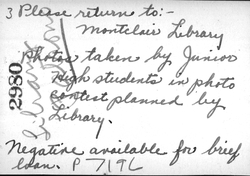 3 Please return to:-
Montclair Library
Photos taken by Junior
High students in photo
contest planned by
Library.
Negative available for brief
loan. P 719L
2980
Library